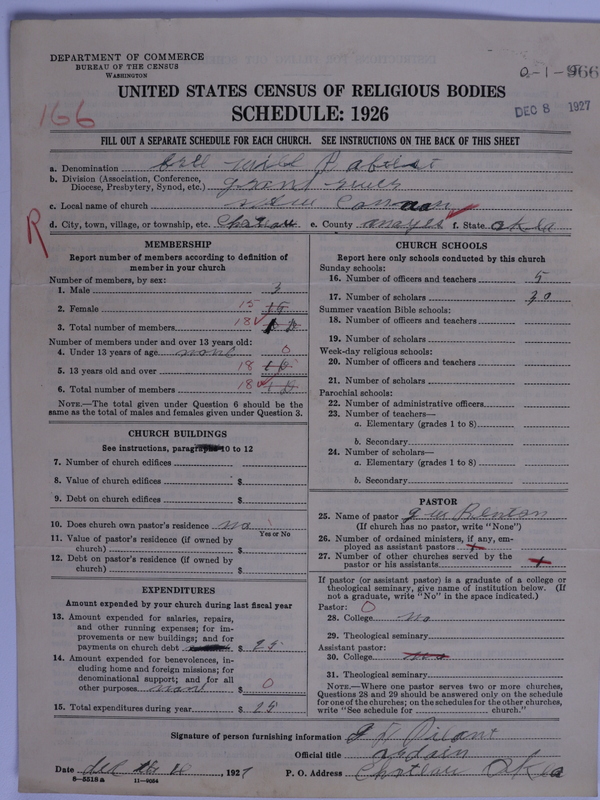 DEPARTMENT OF COMMERCE
BUREAU OF THE CENSUS
WASHINGTON
DEC 8 1927
UNITED STATES CENSUS OF RELIGIOUS BODIES
SCHEDULE: 1926
166
FILL OUT A SEPARATE SCHEDULE FOR EACH CHURCH. SEE INSTRUCTIONS ON THE BACK OF THIS SHEET
a. Denomination
b. Division (Association, Conference, Diocese, Presbytery, Synod, etc.)
c. Local name of church
d. City, town, village, or township, etc. e. County f. State Okla
R
MEMBERSHIP
Report number of members according to definition of
member in your church
Number of members, by sex:
1. Male 3
2. Female 15
3. Total number of members 18
Number of members under and over 13 years old:
4. Under 13 years of age none 0
5. 13 years old and over 18
6. Total number of members 18
NOTE.—The total given under Question 6 should be the
same as the total of males and females given under Question 3.
CHURCH BUILDINGS
See instructions, paragraphs 10 to 12
7. Number of church edifices
8. Value of church edifices $
9. Debt on church edifices $
10. Does church own pastor's residence no
Yes or No
11. Value of pastor's residence (if owned by
church) $
12. Debt on pastor's residence (if owned by
church) $
EXPENDITURES
Amount expended by your church during last fiscal year
13. Amount expended for salaries, repairs,
and other running expenses; for im-
provements or new buildings; and for
payments on church debt $ 25
14. Amount expended for benevolences, in-
cluding home and foreign missions; for
denominational support; and for all
other purposes none $ 0
15. Total expenditures during year $ 25
CHURCH SCHOOLS
Report here only schools conducted by this church
Sunday schools:
16. Number of officers and teachers 5
17. Number of scholars 30
Summer vacation Bible schools:
18. Number of officers and teachers
19. Number of scholars
Week-day religious schools:
20. Number of officers and teachers
21. Number of scholars
Parochial schools:
22. Number of administrative officers
23. Number of teachers—
a. Elementary (grades 1 to 8)
b. Secondary
24. Number of scholars—
a. Elementary (grades 1 to 8)
b. Secondary
PASTOR
25. Name of pastor
(If church has no pastor, write "None")
26. Number of ordained ministers, if any, em-
ployed as assistant pastors
27. Number of other churches served by the
pastor or his assistants
If pastor (or assistant pastor) is a graduate of a college or
theological seminary, give name of institution below. (If
not a graduate, write "No" in the space indicated.)
Pastor: 0
28. College no
29. Theological seminary
Assistant pastor:
30. College no
31. Theological seminary
NOTE.—Where one pastor serves two or more churches,
Questions 28 and 29 should be answered only on the schedule
for one of the churches; on the schedules for the other churches,
write "See schedule for church."
Signature of person furnishing information
Official title
Date , 1927 P. O. Address
8—5518 a 11—9094